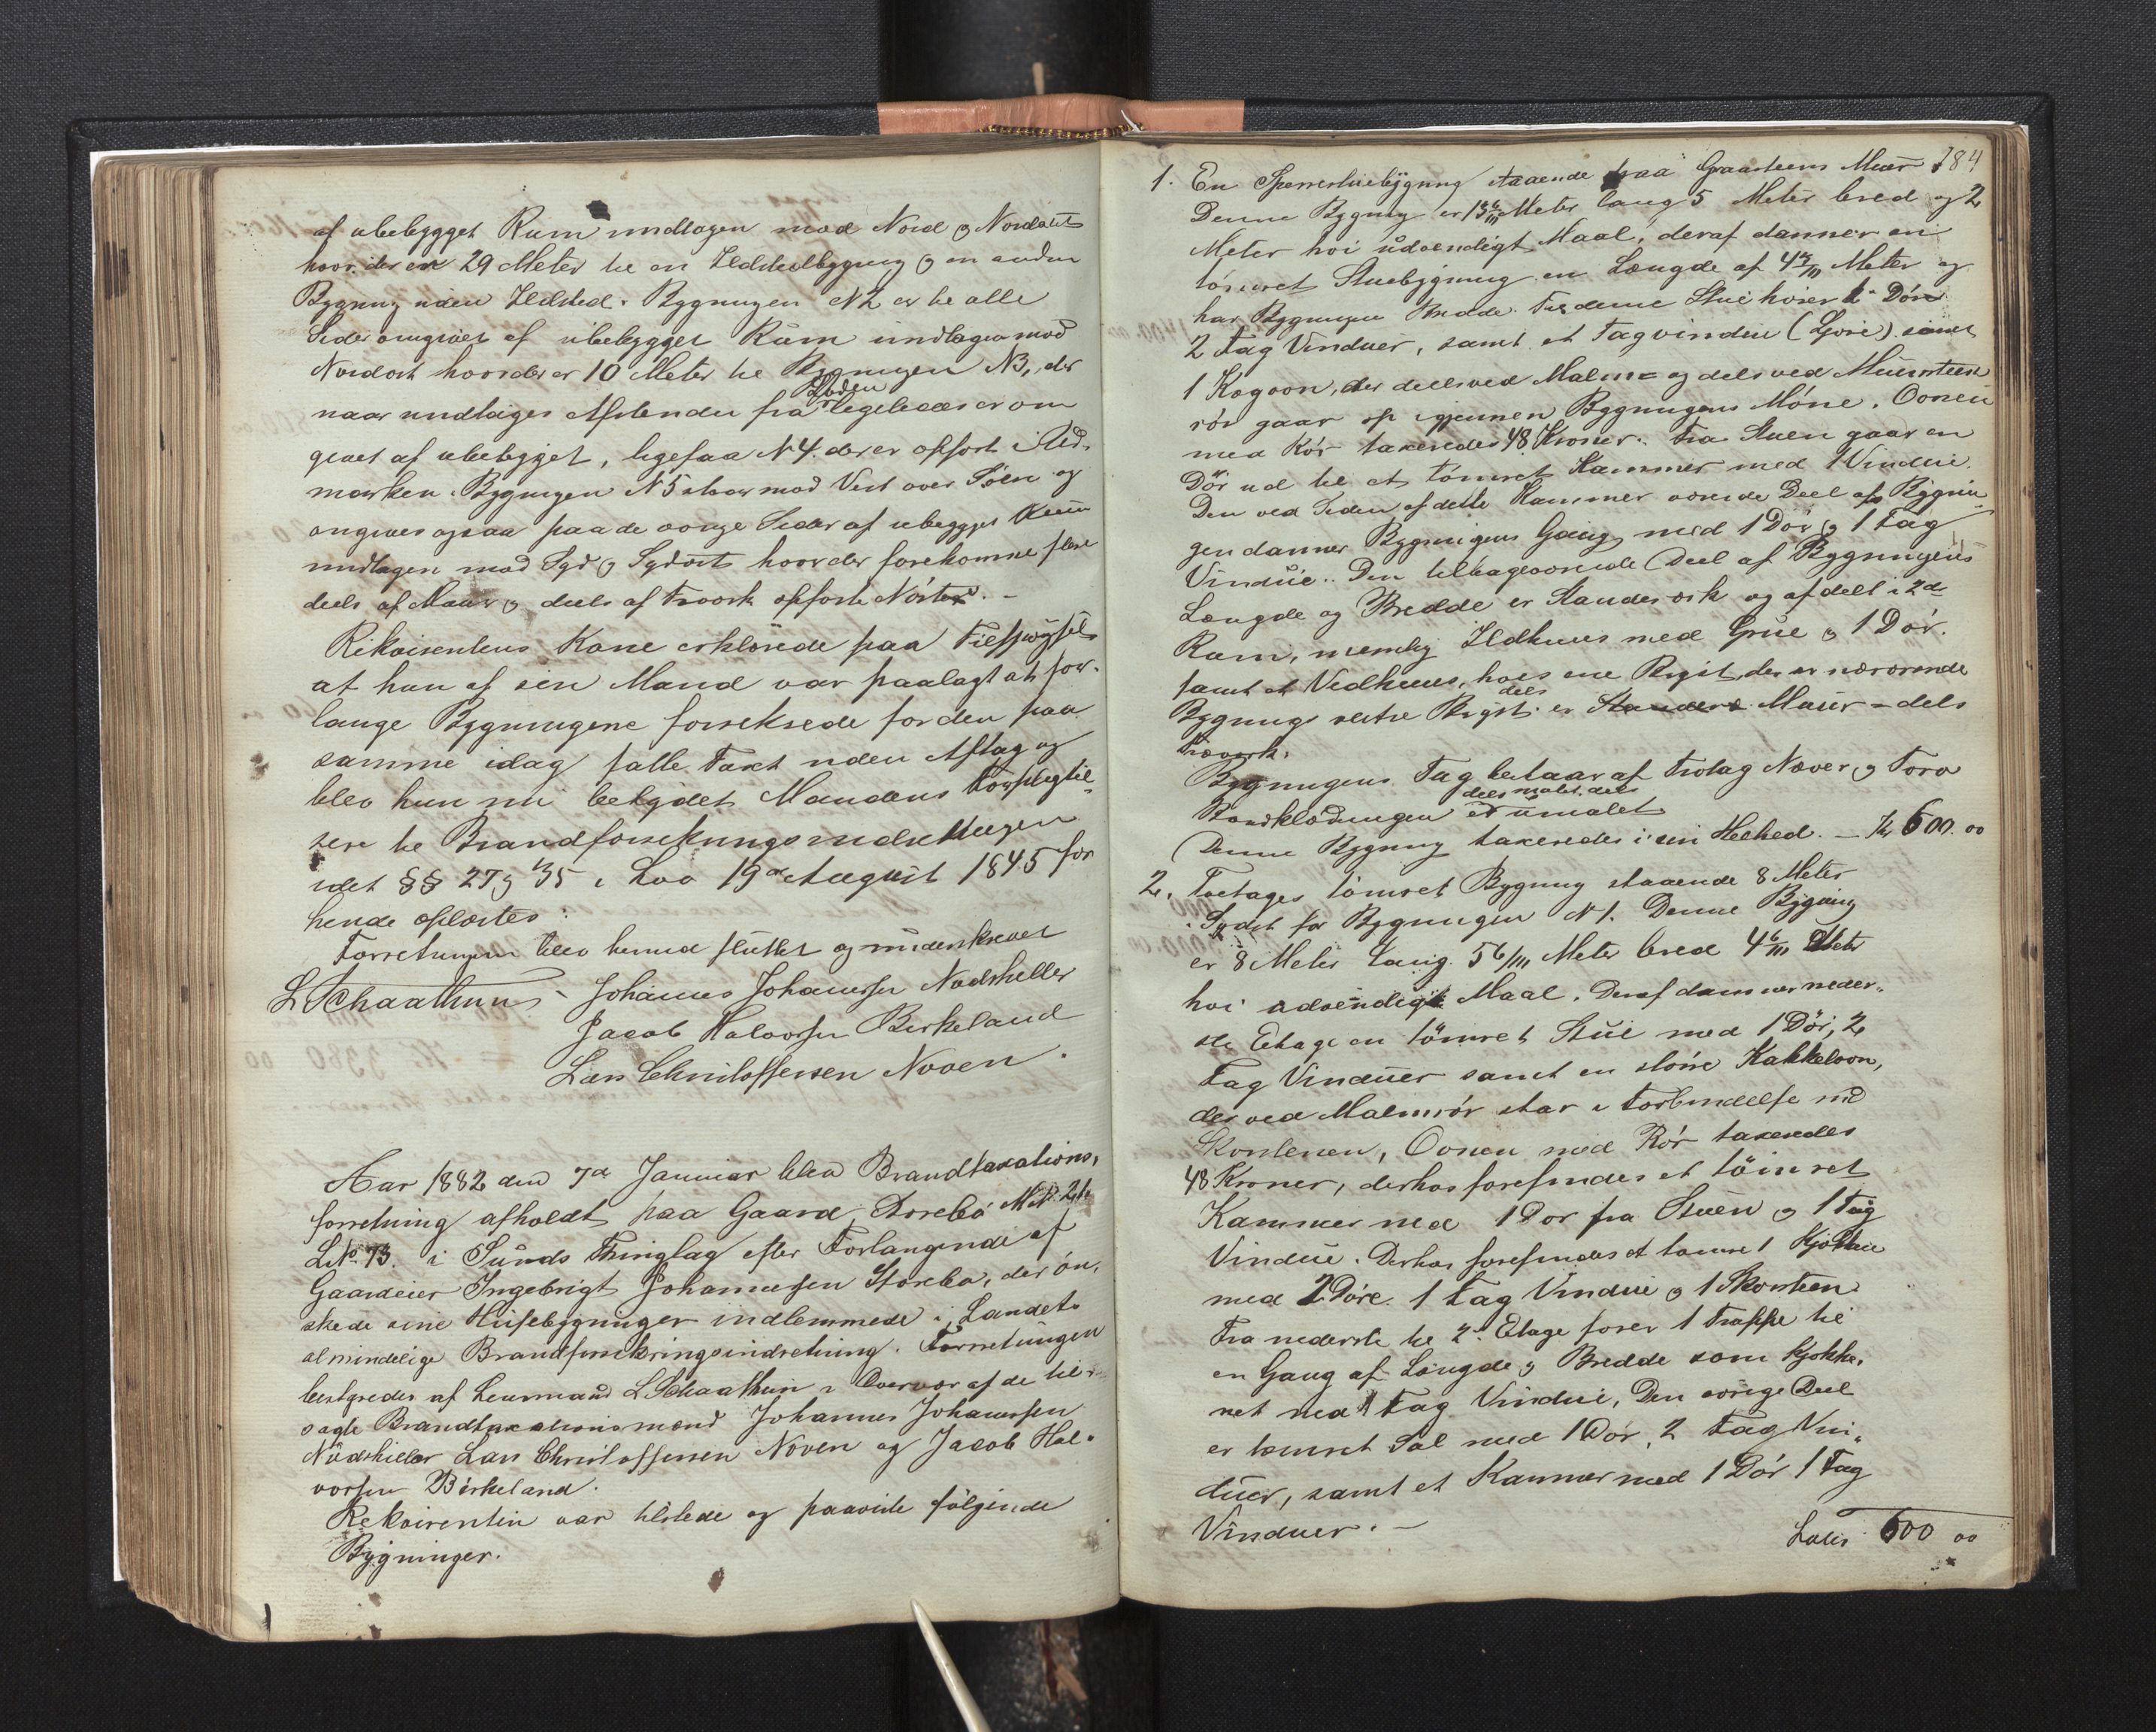 af ubebygget Rum undtagen mod Nord og Nordost
hvor der er 29 Meter til en Ildstedbygning og en anden
Bygning uden Ildsted. Bygningen N 2 er til alle
Sider omgivet af ubebygget Rum undtagen mod
Nordost hvor der er 10 Meter til Bygningen N 3, der
naar undtages Afstanden fra Laden ligeledes er om
givet af ubebygget, ligesaa N 4. der er opført i Ud-
marken. Bygningen N 5 staar mod Vest over Søen og
omgives ogsaa paa de øvrige Sider af ubygget Rum
undtagen mod Syd og Sydost hvor der forekomme flere
deels af Muur og deels af Træværk opførte Nøster. -
Rekvirentens Kone erklærede paa Tilspørgsel
at hun af sin Mand var paalagt at for-
lange Bygningerne forsikrede for den paa
samme idag satte Taxt uden Aftag og
blev hun nu betydet Mandens Forpligtel-
ser til Brandforsikringsindretningen
idet §§ 27 og 35 i Lov 19de August 1845 for
hende oplæstes.
Forretningen blev hermed sluttet og underskrevet
L Schaathun - Johannes Johannessen Nødskeller
Jacob Halvorsen Birkeland
Lars Christoffersen Noven.
Aar 1882 den 7de Januar blev Brandtaxations-
forretning afholdt paa Gaard Storebø M.N. 21
L.No 73. i Sunds Thinglag efter Forlangende af
Gaardeier Ingebrigt Johannessen Storebø, der øn-
skede sine Huusebygninger indlemmede i Landets
almindelige Brandforsikringsindretning. Forretningen
bestyredes af Lensmand L Schaathun i Overvær af de til-
sagte Brandtaxationsmænd Johannes Johannessen
Nødskeller Lars Christoffersen Noven og Jacob Hal-
vorsen Birkeland.
Rekvirenten var tilstede og paaviste følgende
Bygninger.
184
1. En Sperrestuebygning staaende paa Graasteens Muur
Denne Bygning er 13 Meter lang 5 Meter bred og 2
Meter høi udvendigt Maal, deraf danner en
tømret Stuebygning en Længde af 4 Meter og
har Bygningens Bredde. I denne Stue hører 1 Dør
2 Fag Vinduer, samt et Tagvindue (Ljore) samt
1 Kogoon, der deels ved Malm= og deels ved Muursteens
rør gaar op igjennem Bygningens Møne. Oonen
med Rør taxeredes 48 Kroner. Fra Stuen gaar en
Dør ud til et tømret Kammer med 1 Vindue.
Den ved Siden af dette Kammer værende Deel af Bygnin-
gen danner Bygningens Gang med 1 Dør og 1 Fag
Vindue. Den tilbageværende Deel af Bygningens
Længde og Bredde er Standerværk og afdelt i 2de
Rum, nemlig Ildhuus med Grue og 1 Dør.
samt et Vedhuus, hvis ene Rygst, der er nærværende
Bygnings vestre Rygst er deels Muur - dels
Træværk.
Bygningens Tag bestaar af Trotag Næver og Torv
Bordklædningen er deels malet deels umalet
Denne Bygning taxeredes i sin Heelhed. - Kr 600. 00
2. Toetages tømret Bygning staaende 8 Meter
i Sydost for Bygningen N 1. Denne Bygning
er 8 Meter lang. 5 6/10 Meter bred 4 6/10 Meter
høi udvendigt Maal. Deraf danner neder-
ste Etage en tømret Stue med 1 Dør, 2
Fag Vinduer samt en større Kakkeloon,
der ved Malmrør star i Forbindelse med
Skorstenen, Oonen med Rør taxeredes
48 Kroner, derhos forefindes et tømret
Kammer med 1 Dør fra Stuen og 1 Fag
Vindue. Derhos forefindes et tømret Kjøkken
med 2 Døre. 1 Fag Vindue og 1 Skorsteen.
Fra nederste til 2 Etage fører 1 Trappe til
en Gang af Længde og Bredde som Kjøkke-
net med 1 Fag Vindue, Den øvrige Deel
er tømret Sal med 1 Dør, 2 Fag Vin-
duer, samt et Kammer med 1 Dør 1 Fag
Vinduer. -
Latus 600 00